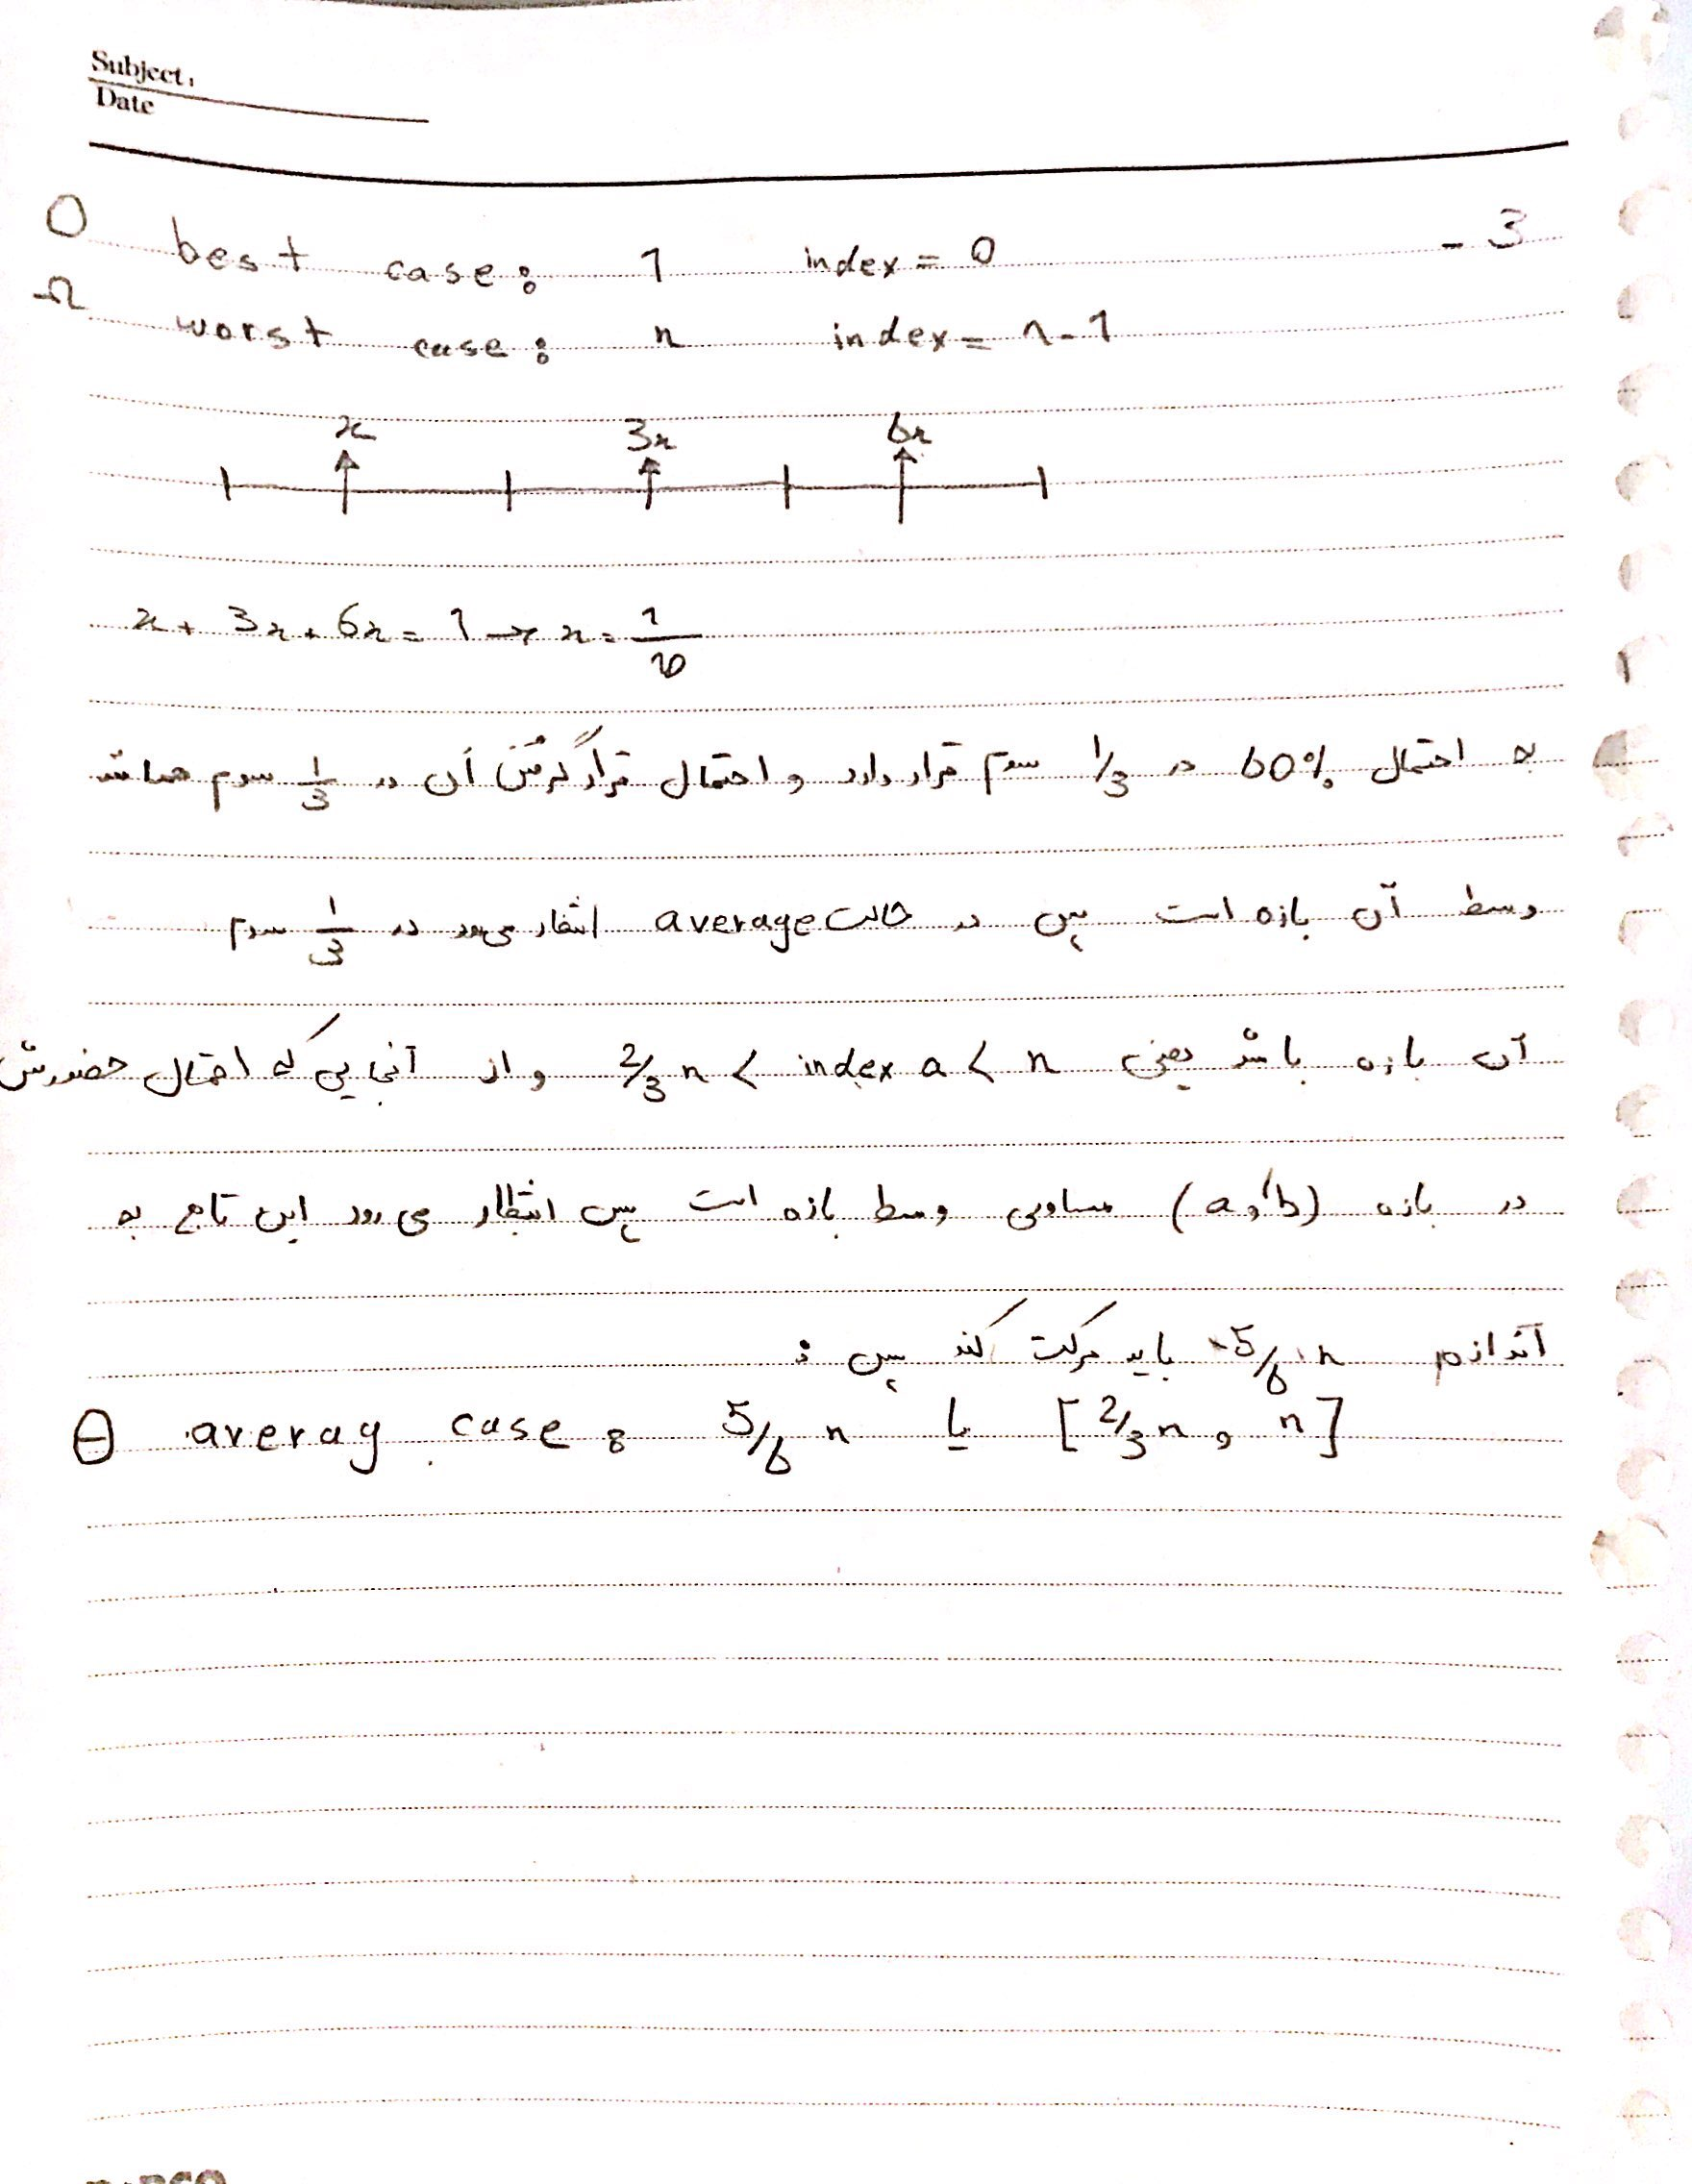 Subject:
Date
3 -
O best case: 1 index = 0
Ω worst case: n index = n-1
x 3x 6x
x + 3x + 6x = 1 → x = 1/10
به احتمال 60% در 1/3 سوم قرار دارد و احتمال قرار گرفتن آن در 1/3 سوم همانند
وسط آن بازه است پس در حالت average انتظار می‌رود در 1/3 سوم
آن بازه باشد یعنی 2/3 n < index a < n و از آنجایی که احتمال حضورش
در بازه (a و b) مساوی وسط بازه است پس انتظار می رود این تابع به
اندازه 5/6 n باید حرکت کند پس :
Θ averag case : 5/6 n یا [2/3 n و n]